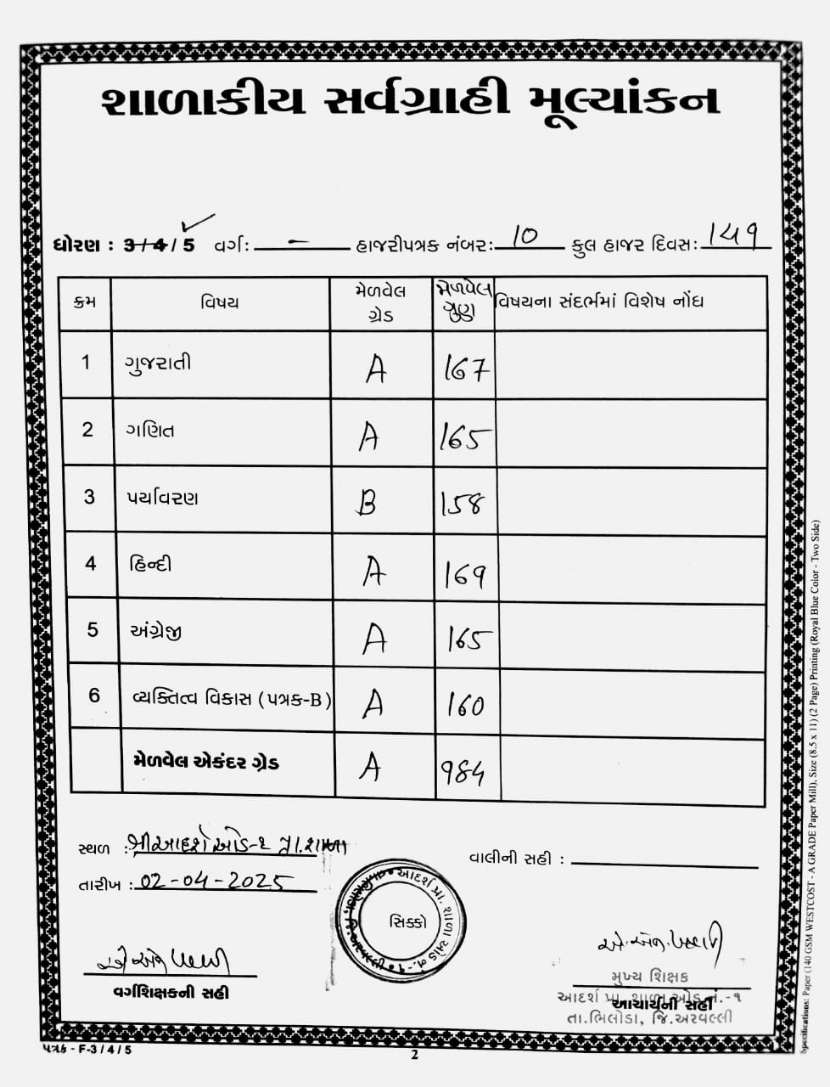 શાળાકીય સર્વગ્રાહી મૂલ્યાંકન
ધોરણ : 3/4/5 વર્ગ: - હાજરીપત્રક નંબર: 10 કુલ હાજર દિવસ: 149
ક્રમ વિષય મેળવેલ ગ્રેડ મેળવેલ ગુણ વિષયના સંદર્ભમાં વિશેષ નોંધ
1 ગુજરાતી A 167
2 ગણિત A 165
3 પર્યાવરણ B 158
4 હિન્દી A 169
5 અંગ્રેજી A 165
6 વ્યક્તિત્વ વિકાસ (પત્રક-B) A 160
મેળવેલ એકંદર ગ્રેડ A 984
સ્થળ : શ્રી આદર્શ ઓડ-૧ પ્રા. શાળા
વાલીની સહી :
તારીખ : 02-04-2025
સિક્કો
વર્ગશિક્ષકની સહી
મુખ્ય શિક્ષક
આચાર્યની સહી
આદર્શ પ્રા. શાળા ઓડ નં.-૧
તા.ભિલોડા, જિ.અરવલ્લી
પત્રક - F-3 / 4 / 5
2
Specifications: Paper (140 GSM WESTCOST - A GRADE Paper Mill), Size (8.5 x 11) (2 Page) Printing (Royal Blue Color - Two Side)